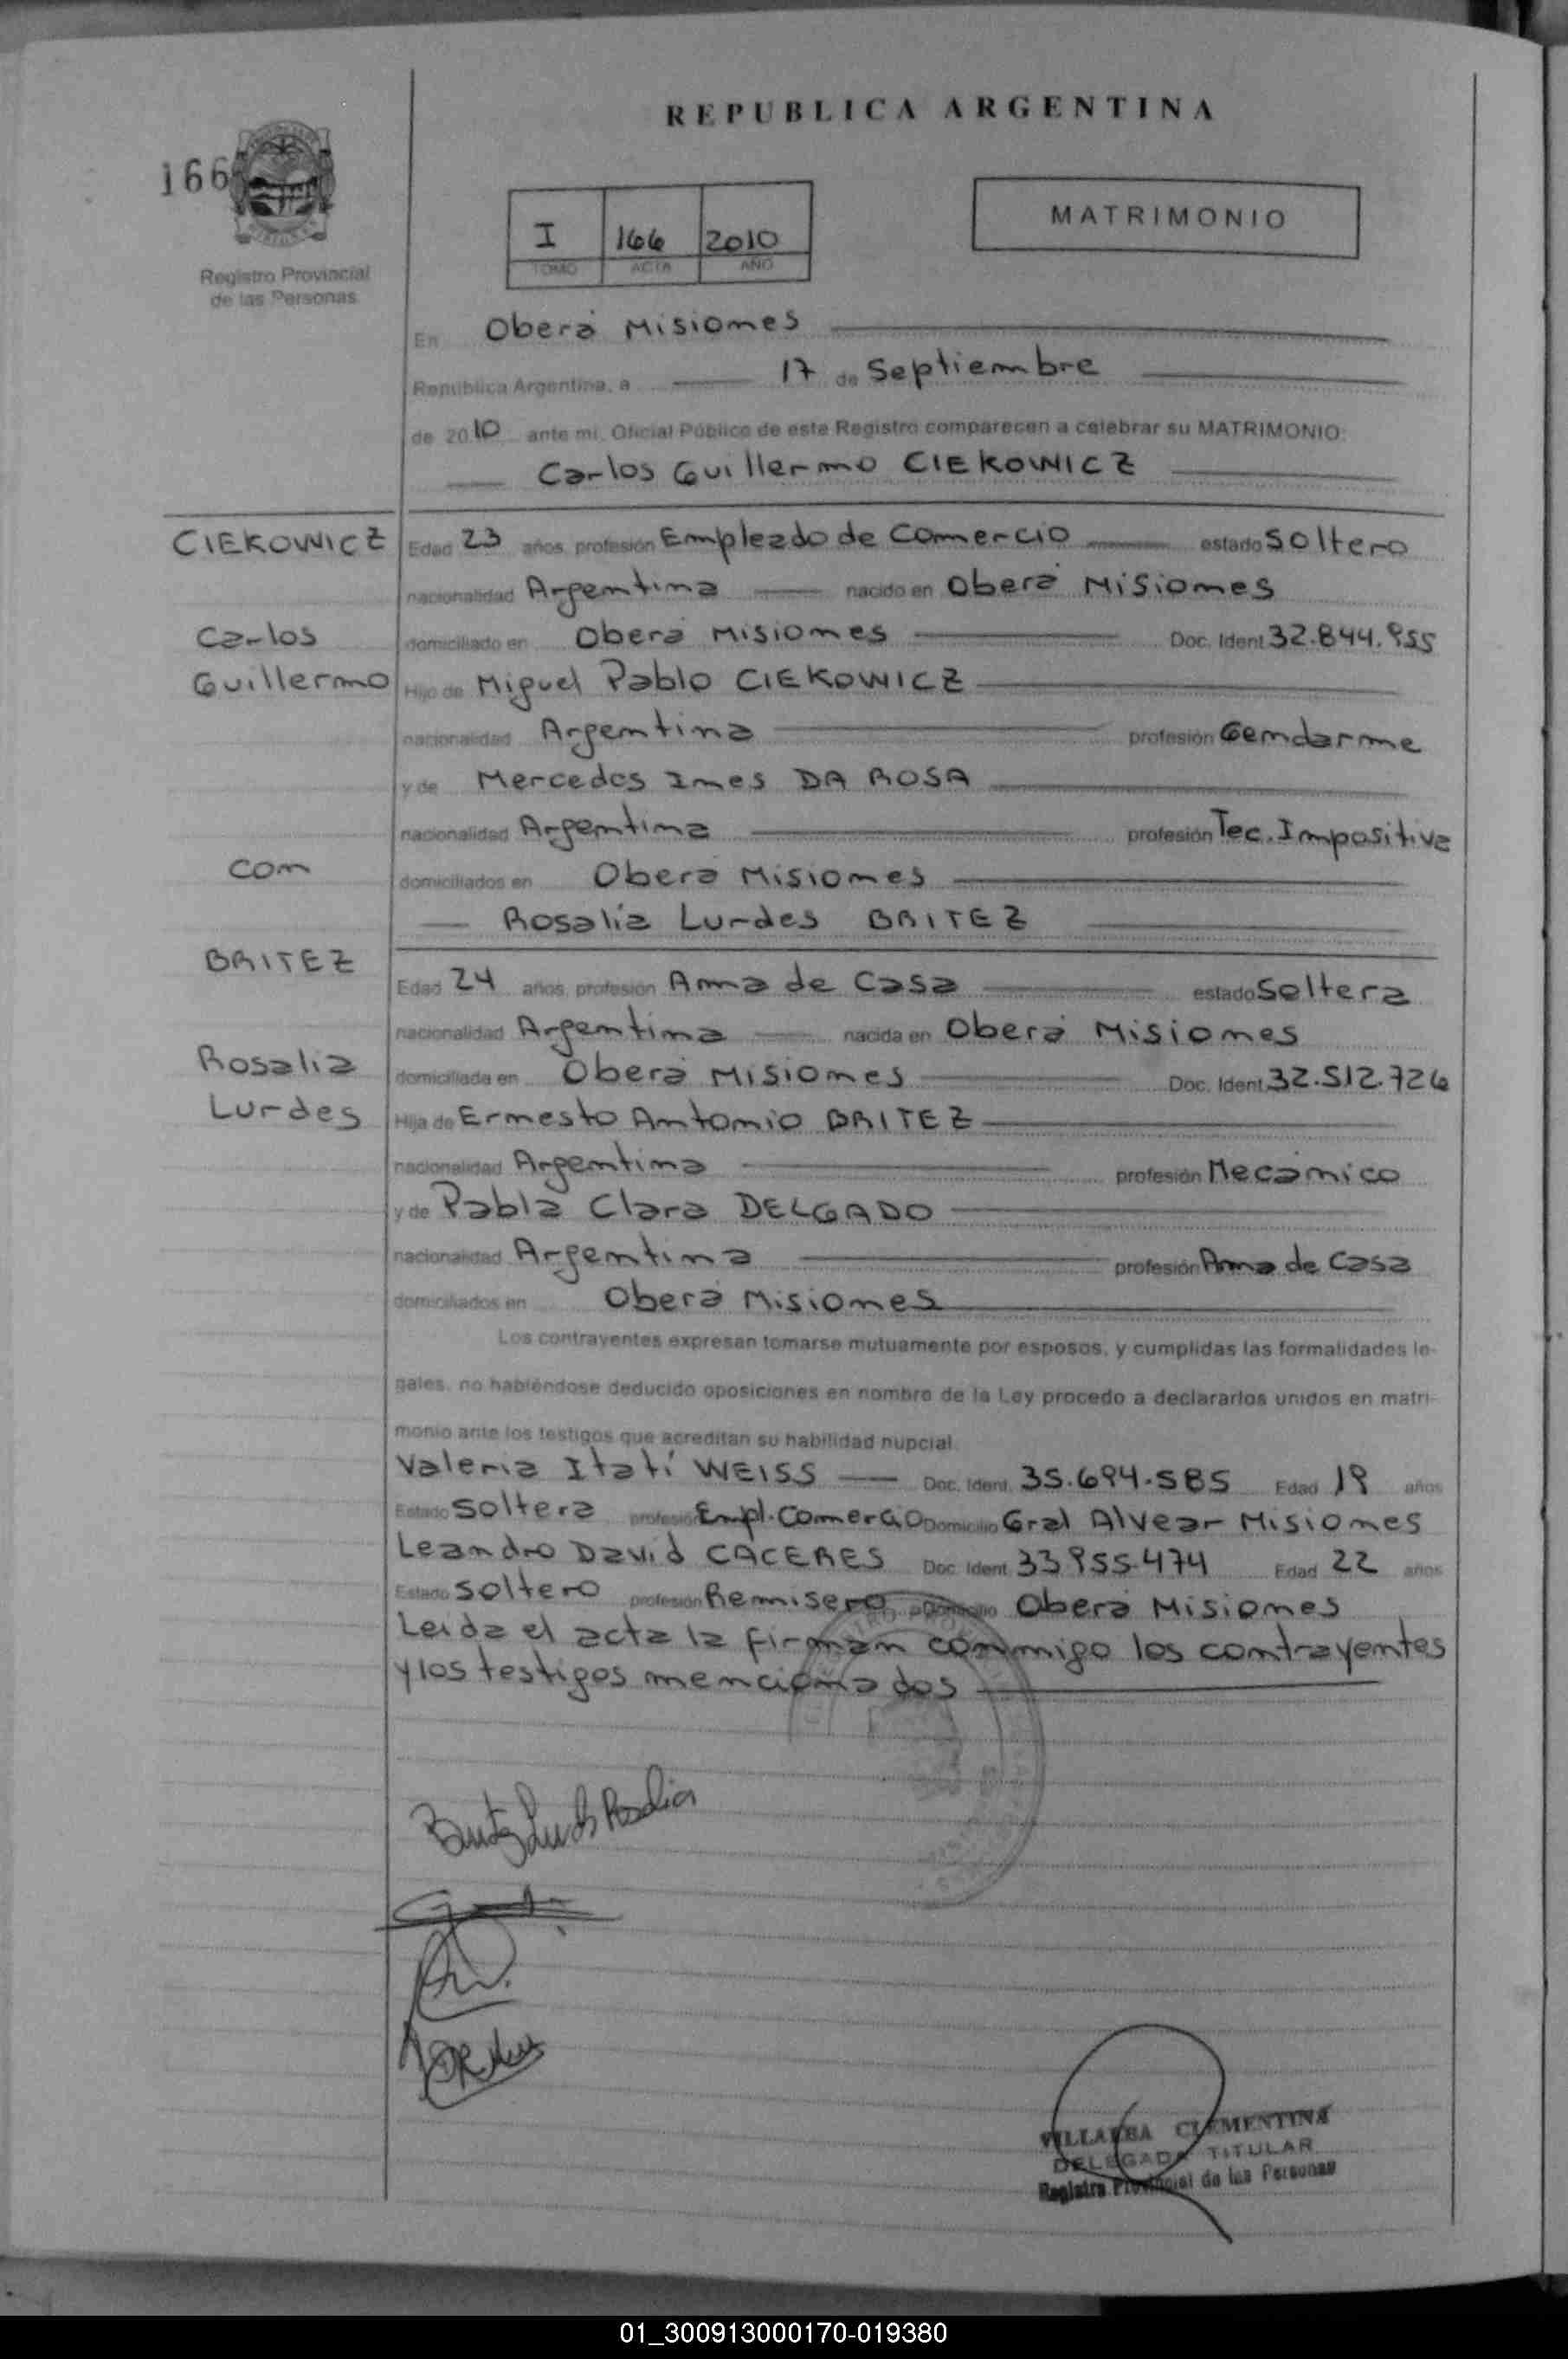 REPUBLICA ARGENTINA
166
I 166 2010
TOMO ACTA AÑO
MATRIMONIO
Registro Provincial
de las Personas
En Oberá Misiones
República Argentina, a 17 de Septiembre
de 2010 ante mí, Oficial Público de este Registro comparecen a celebrar su MATRIMONIO:
Carlos Guillermo CIEKOWICZ
CIEKOWICZ Edad 23 años, profesión Empleado de Comercio estado Soltero
nacionalidad Argentina nacido en Oberá Misiones
Carlos domiciliado en Oberá Misiones Doc. Ident. 32.844.955
Guillermo Hijo de Miguel Pablo CIEKOWICZ
nacionalidad Argentina profesión Gendarme
y de Mercedes Ines DA ROSA
nacionalidad Argentina profesión Tec. Impositiva
con domiciliados en Oberá Misiones
Rosalía Lurdes BRITEZ
BRITEZ Edad 24 años, profesión Ama de Casa estado Soltera
nacionalidad Argentina nacida en Oberá Misiones
Rosalía domiciliada en Oberá Misiones Doc. Ident. 32.512.726
Lurdes Hija de Ernesto Antonio BRITEZ
nacionalidad Argentina profesión Mecánico
y de Pabla Clara DELGADO
nacionalidad Argentina profesión Ama de Casa
domiciliados en Oberá Misiones
Los contrayentes expresan tomarse mutuamente por esposos, y cumplidas las formalidades le-
gales, no habiéndose deducido oposiciones en nombre de la Ley procedo a declararlos unidos en matri-
monio ante los testigos que acreditan su habilidad nupcial.
Valeria Itatí WEISS Doc. Ident. 35.694.585 Edad 19 años
Estado Soltera profesión Empl. Comercio Domicilio Gral Alvear Misiones
Leandro David CACERES Doc. Ident. 33.955.474 Edad 22 años
Estado Soltero profesión Remisero Domicilio Oberá Misiones
Leida el acta la firman conmigo los contrayentes
y los testigos mencionados
Britez Lurdes Rosalia
VILLALBA CLEMENTINA
DELEGADA TITULAR
Registro Provincial de las Personas
01_300913000170-019380